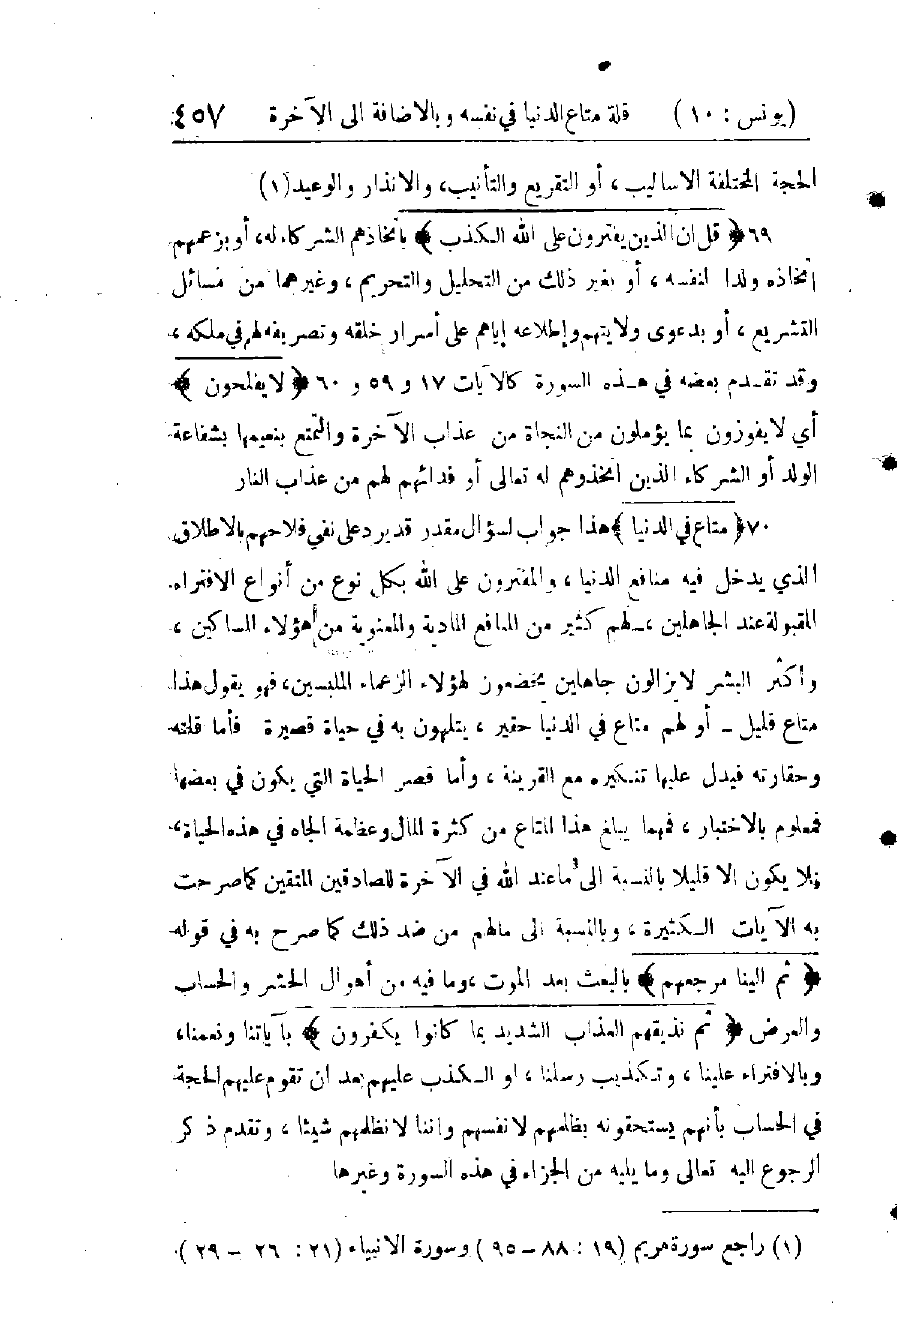 (يونس : ١٠) قلة متاع الدنيا في نفسه وبالاضافة الى الآخرة ٤٥٧
الحجة المختلفة الاساليب ، أو التقريع والتأنيب، والانذار والوعيد (١)
٦٩ ﴿ قل ان الذين يفترون على الله الكذب ﴾ باتخاذهم الشركاء له، أو بزعمهم
اتخاذه ولدا لنفسه ، أو بغير ذلك من التحليل والتحريم ، وغيرهما من مسائل
التشريع ، أو بدعوى ولايتهم وإطلاعه إياهم على أسرار خلقه وتصريفه لهم في ملكه ،
وقد تقدم بعضه في هذه السورة كالآيات ١٧ و ٥٩ و ٦٠ ﴿ لا يفلحون ﴾
أي لا يفوزون بما يؤملون من النجاة من عذاب الآخرة والتمتع بنعيمها بشفاعة
الولد أو الشركاء الذين اتخذوهم له تعالى أو فدائهم لهم من عذاب النار
٧٠ ﴿ متاع في الدنيا ﴾ هذا جواب لسؤال مقدر قد يرد على نفي فلاحهم بالاطلاق
الذي يدخل فيه منافع الدنيا ، والمفترون على الله بكل نوع من أنواع الافتراء
المقبولة عند الجاهلين ، لهم كثير من المنافع المادية والمعنوية من هؤلاء المساكين ،
وأكثر البشر لا يزالون جاهلين يخضعون لهؤلاء الزعماء الملبسين، فهو يقول هذا
متاع قليل ــ أو لهم متاع في الدنيا حقير ، يتلهون به في حياة قصيرة فأما قلته
وحقارته فيدل عليها تنكيره مع القرينة ، وأما قصر الحياة التي يكون في بعضها
فمعلوم بالاختبار ، فهما يبلغ هذا المتاع من كثرة المال وعظمة الجاه في هذه الحياة،
فلا يكون الا قليلا بالنسبة الى ما عند الله في الآخرة للصادقين المتقين كما صرحت
به الآيات الكثيرة ، وبالنسبة الى مالهم من ضد ذلك كما صرح به في قوله
﴿ ثم الينا مرجعهم ﴾ بالبعث بعد الموت ،وما فيه من أهوال الحشر والحساب
والعرض ﴿ ثم نذيقهم العذاب الشديد بما كانوا يكفرون ﴾ بآياتنا ونعمنا،
وبالافتراء علينا ، وتكذيب رسلنا ، او الكذب عليهم بعد ان تقوم عليهم الحجة
في الحساب بأنهم يستحقونه بظلمهم لانفسهم واننا لا نظلمهم شيئا ، وتقدم ذكر
الرجوع اليه تعالى وما يليه من الجزاء في هذه السورة وغيرها
(١) راجع سورة مريم (١٩ : ٨٨ ــ ٩٥) وسورة الانبياء (٢١ : ٢٦ ــ ٢٩).